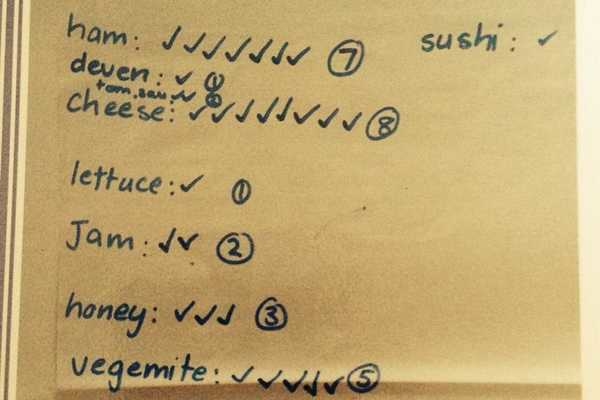 ham: ✓ ✓ ✓ ✓ ✓ ✓ ✓ 7
sushi: ✓
deven: ✓ 1
tom.sau: ✓✓ 2
cheese: ✓ ✓ ✓ ✓ ✓ ✓ ✓ ✓ 8
lettuce: ✓ 1
Jam: ✓ ✓ 2
honey: ✓ ✓ ✓ 3
vegemite: ✓ ✓ ✓ ✓ ✓ 5